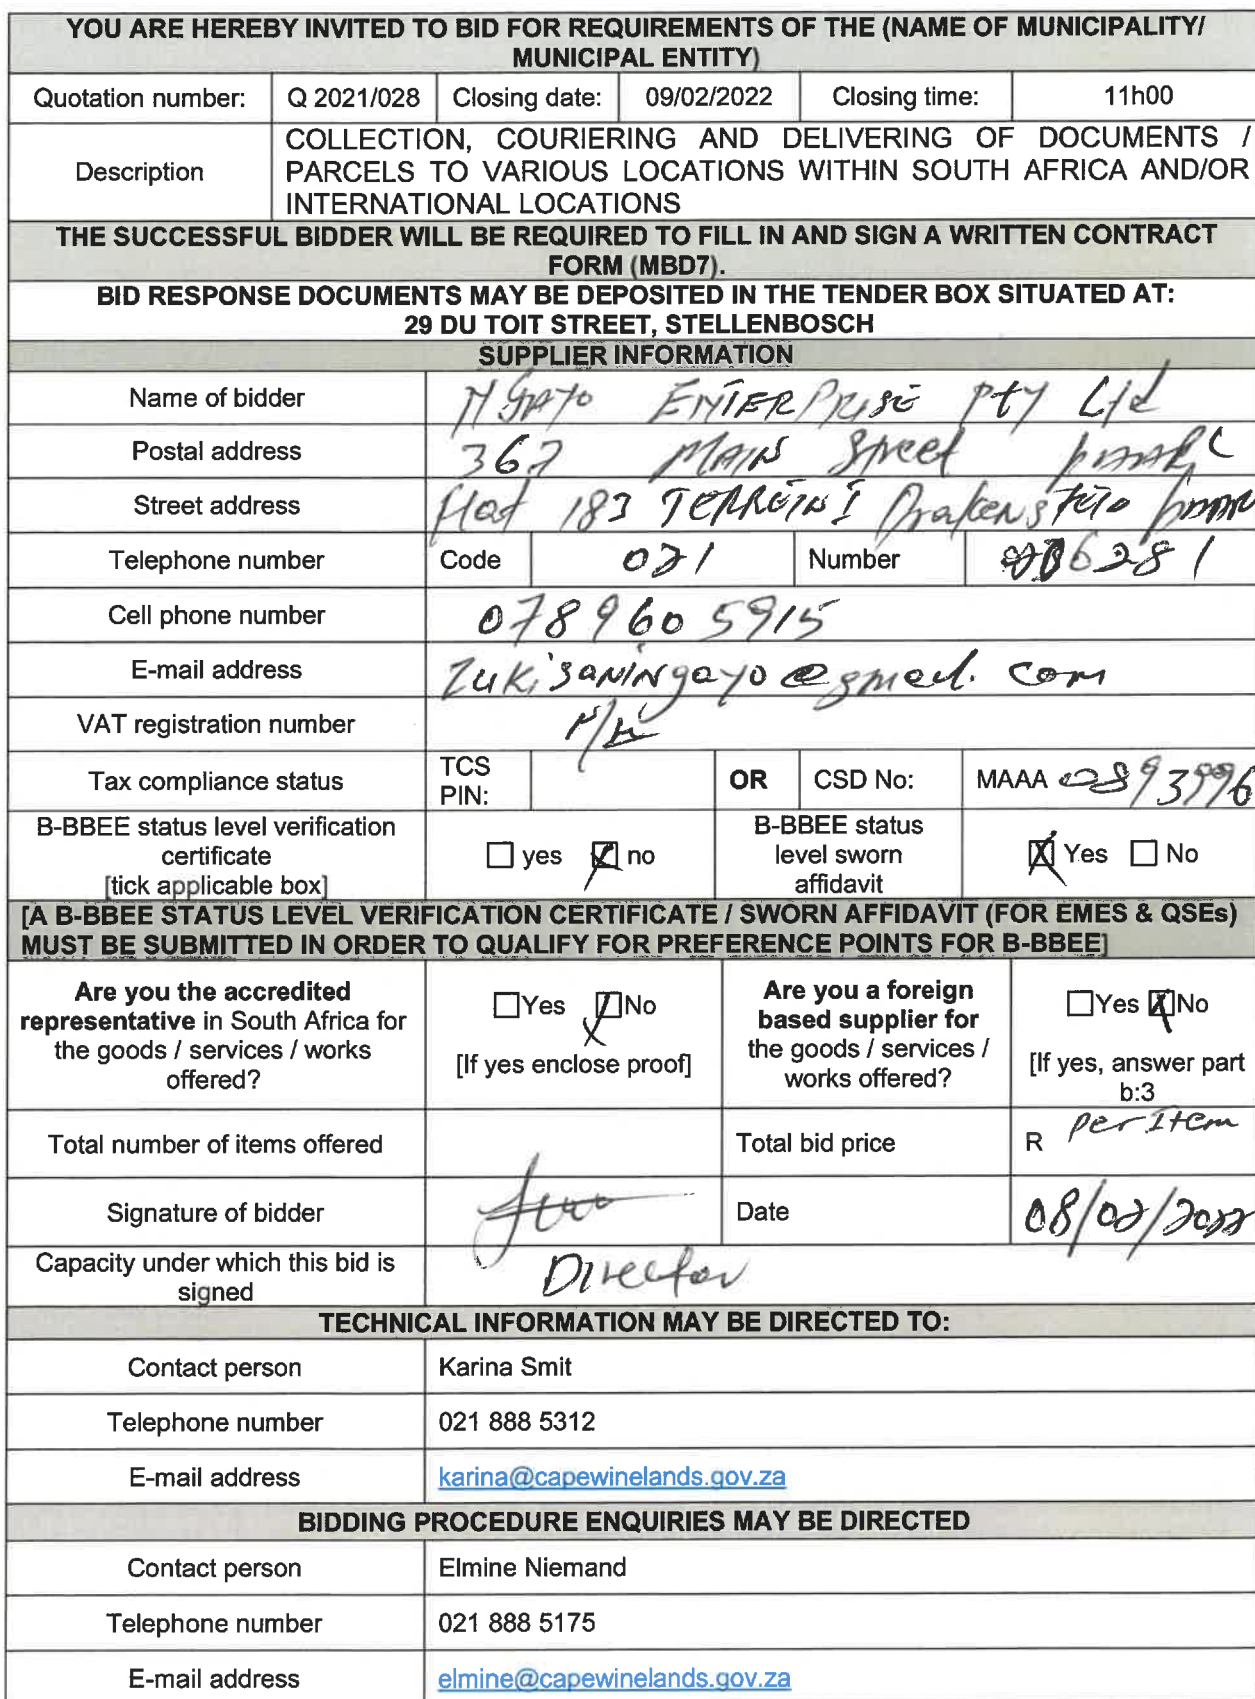 YOU ARE HEREBY INVITED TO BID FOR REQUIREMENTS OF THE (NAME OF MUNICIPALITY/
MUNICIPAL ENTITY)
Quotation number: Q 2021/028 Closing date: 09/02/2022 Closing time: 11h00
Description
COLLECTION, COURIERING AND DELIVERING OF DOCUMENTS /
PARCELS TO VARIOUS LOCATIONS WITHIN SOUTH AFRICA AND/OR
INTERNATIONAL LOCATIONS
THE SUCCESSFUL BIDDER WILL BE REQUIRED TO FILL IN AND SIGN A WRITTEN CONTRACT
FORM (MBD7).
BID RESPONSE DOCUMENTS MAY BE DEPOSITED IN THE TENDER BOX SITUATED AT:
29 DU TOIT STREET, STELLENBOSCH
SUPPLIER INFORMATION
Name of bidder ENTERPRISE Pty Ltd
Postal address 367 MAIN Street
Street address Flat 183 Drakenstein
Telephone number Code 021 Number
Cell phone number 078 960 5915
E-mail address zukisaningayo@gmail.com
VAT registration number
Tax compliance status
TCS
PIN:
OR CSD No: MAAA
B-BBEE status level verification
certificate
[tick applicable box]
yes no
B-BBEE status
level sworn
affidavit
Yes No
[A B-BBEE STATUS LEVEL VERIFICATION CERTIFICATE / SWORN AFFIDAVIT (FOR EMES & QSEs)
MUST BE SUBMITTED IN ORDER TO QUALIFY FOR PREFERENCE POINTS FOR B-BBEE]
Are you the accredited
representative in South Africa for
the goods / services / works
offered?
Yes No
[If yes enclose proof]
Are you a foreign
based supplier for
the goods / services /
works offered?
Yes No
[If yes, answer part
b:3
Total number of items offered Total bid price R per Item
Signature of bidder Date 08/02/2022
Capacity under which this bid is
signed
Director
TECHNICAL INFORMATION MAY BE DIRECTED TO:
Contact person Karina Smit
Telephone number 021 888 5312
E-mail address karina@capewinelands.gov.za
BIDDING PROCEDURE ENQUIRIES MAY BE DIRECTED
Contact person Elmine Niemand
Telephone number 021 888 5175
E-mail address elmine@capewinelands.gov.za